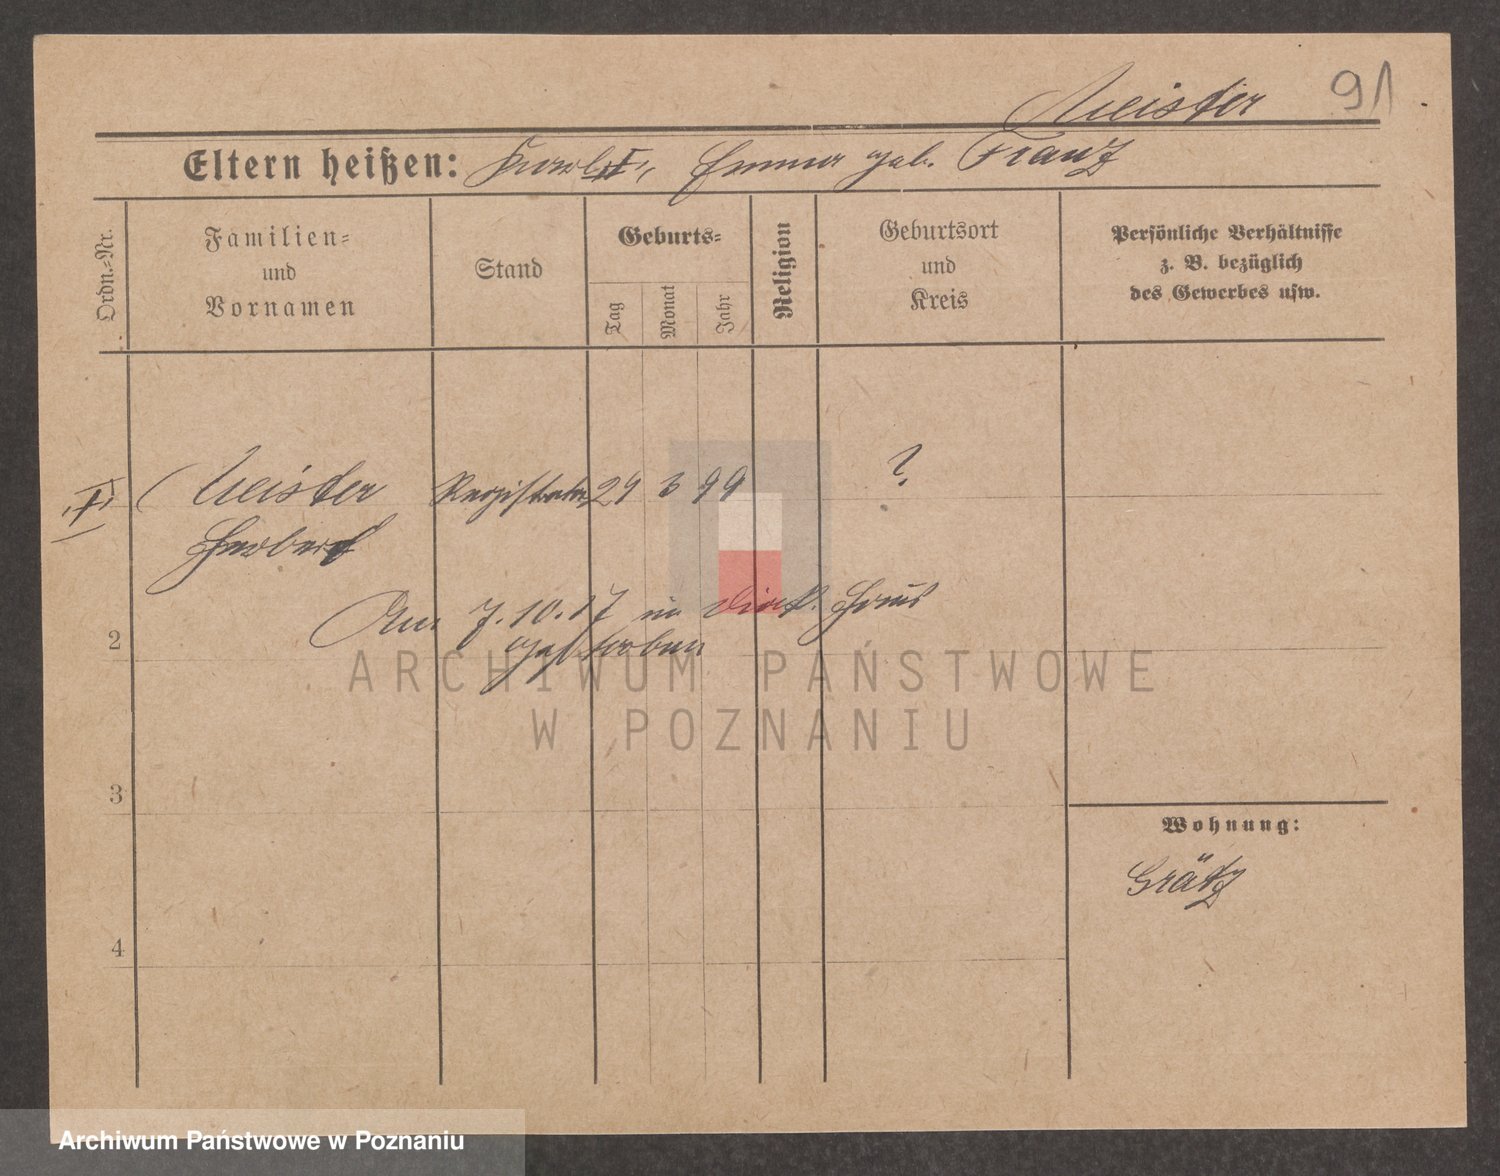 91
Meister
Eltern heißen: Karl, Emma geb. Franz
Ordn.-Nr.
Familien- und Vornamen
Stand
Geburts-
Tag
Monat
Jahr
Religion
Geburtsort und Kreis
Persönliche Verhältnisse z. B. bezüglich des Gewerbes usw.
Meister Registrator 29 3 99 ?
Herbert
Am 7.10.17 im Diak. Haus
gestorben
2
3
4
Wohnung:
Grätz
ARCHIWUM PAŃSTWOWE
W POZNANIU
Archiwum Państwowe w Poznaniu